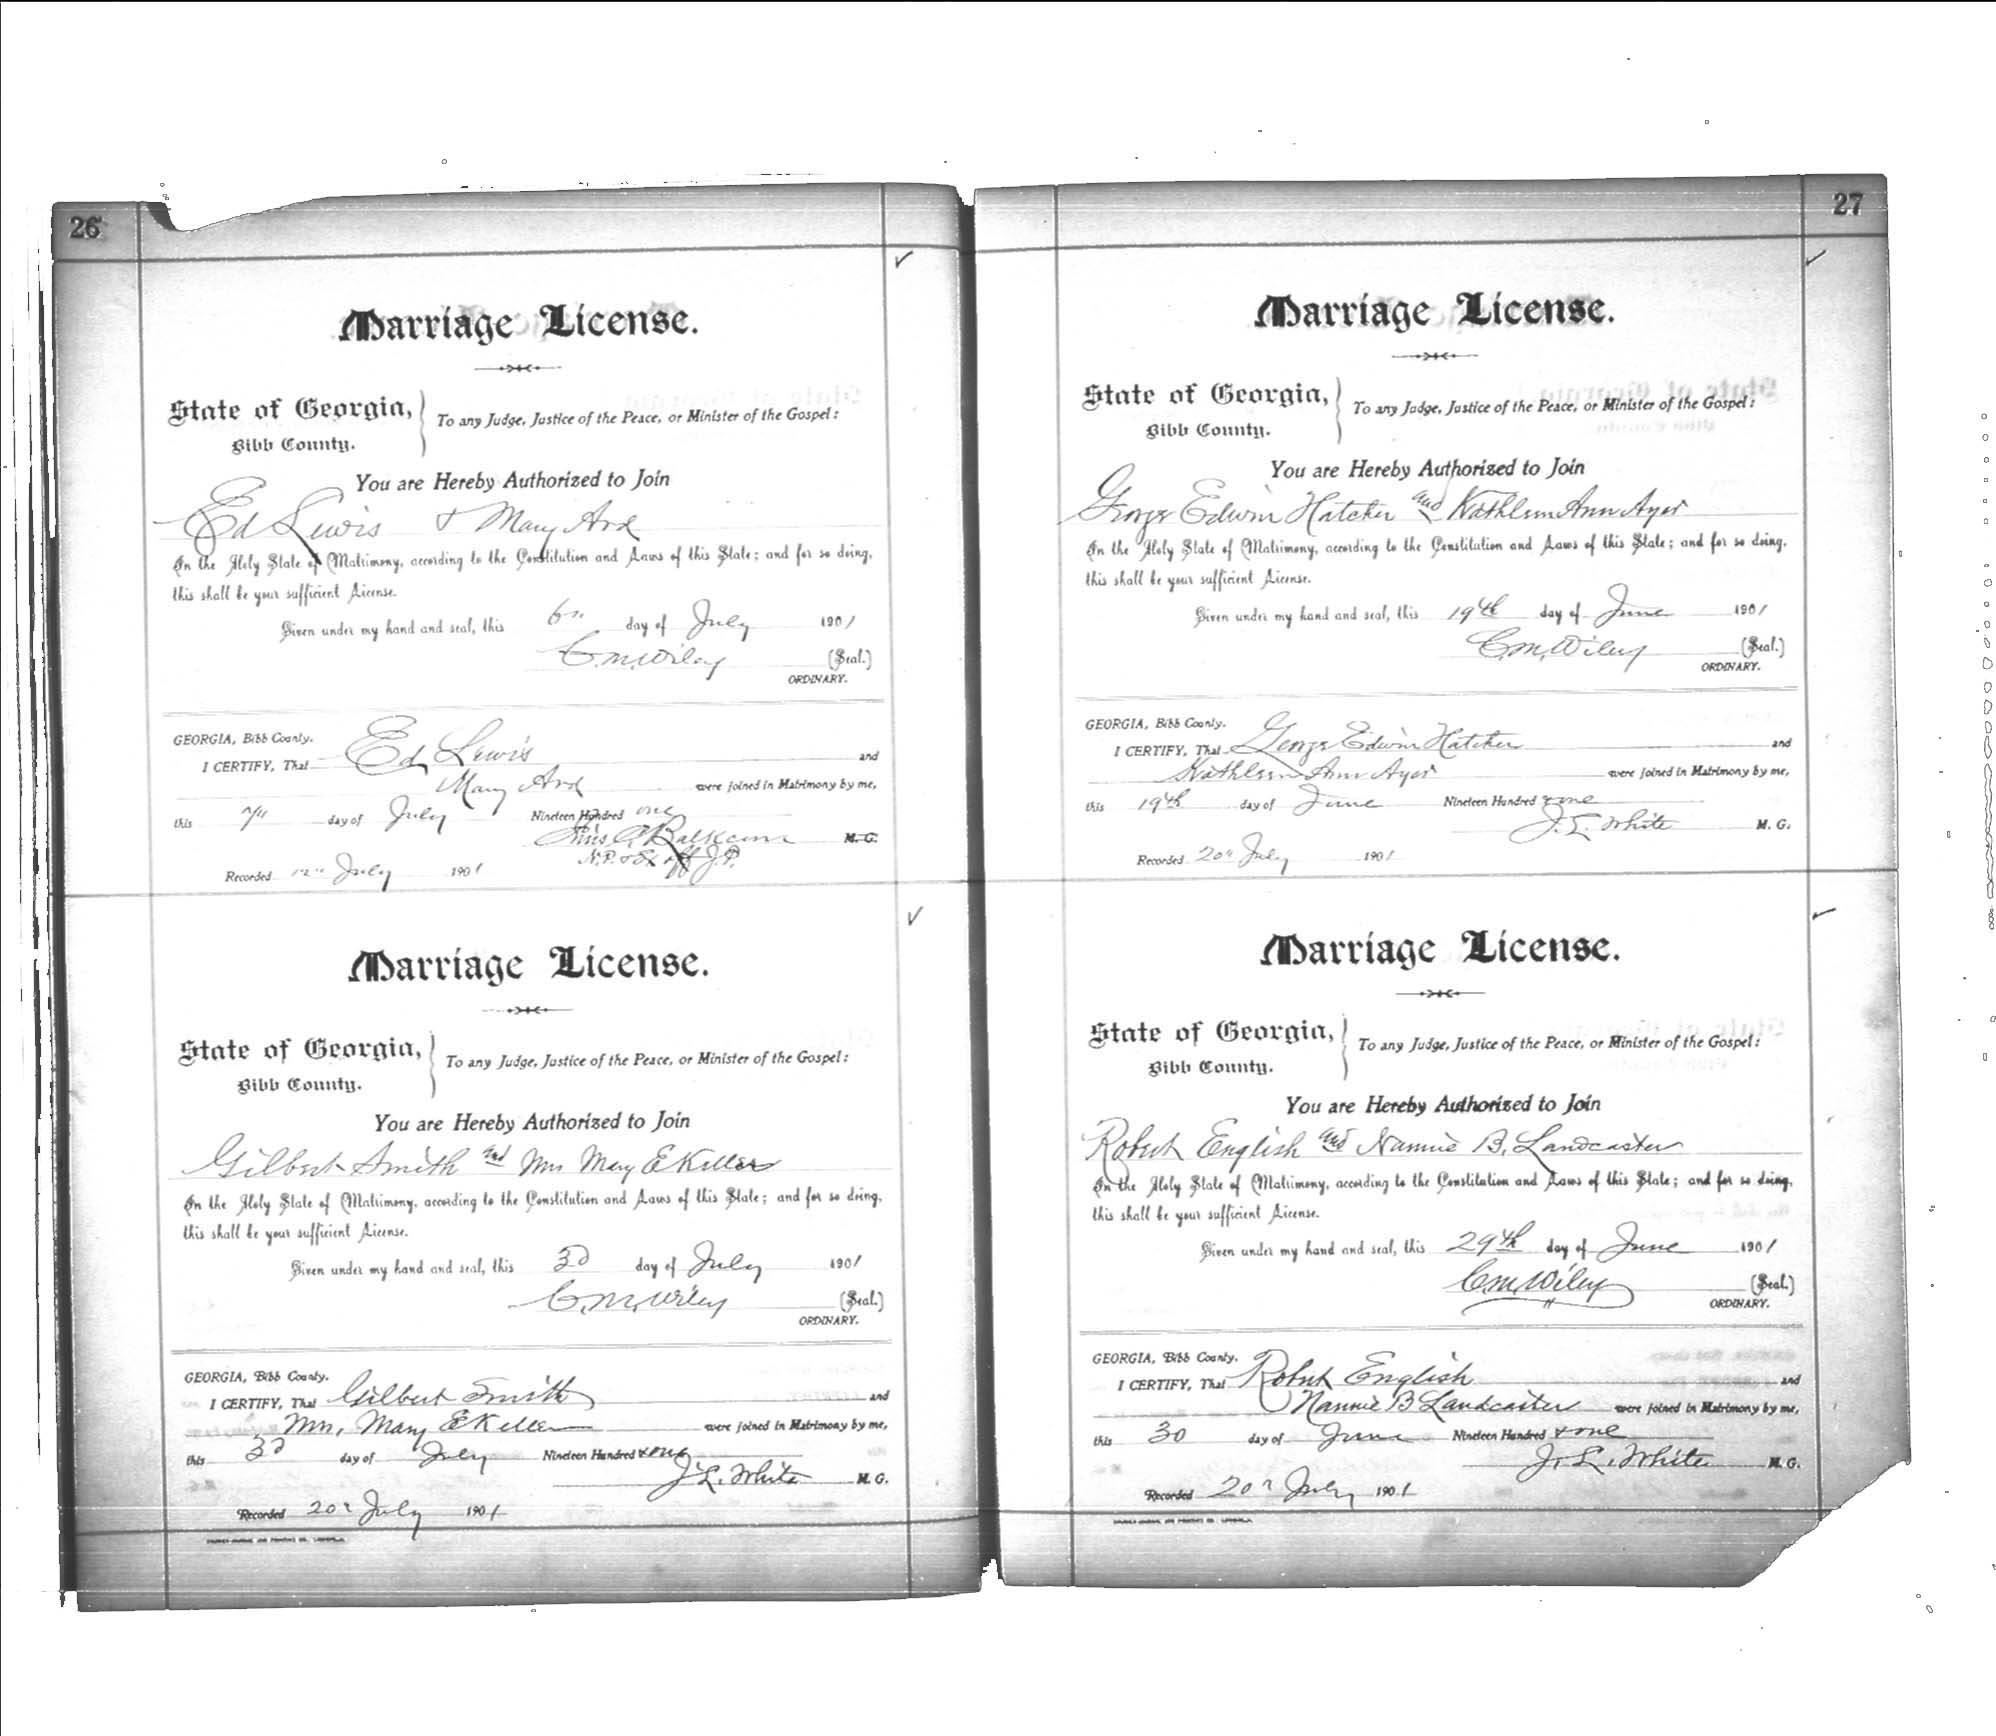 26
Marriage License.
State of Georgia,
Bibb County.
To any Judge, Justice of the Peace, or Minister of the Gospel:
You are Hereby Authorized to Join
Ed Lewis & Mary Ard
In the Holy State of Matrimony, according to the Constitution and Laws of this State; and for so doing,
this shall be your sufficient License.
Given under my hand and seal, this 6th day of July 1901
C.M. Wiley (Seal.)
ORDINARY.
GEORGIA, Bibb County.
I CERTIFY, That Ed Lewis and
Mary Ard were joined in Matrimony by me,
this 7th day of July Nineteen Hundred one
Balkcom M. G.
N.P. & Ex off J.P.
Recorded 12th July 1901
Marriage License.
State of Georgia,
Bibb County.
To any Judge, Justice of the Peace, or Minister of the Gospel:
You are Hereby Authorized to Join
Gilbert Smith and Mrs Mary E Keller
In the Holy State of Matrimony, according to the Constitution and Laws of this State; and for so doing,
this shall be your sufficient License.
Given under my hand and seal, this 3d day of July 1901
C.M. Wiley (Seal.)
ORDINARY.
GEORGIA, Bibb County.
I CERTIFY, That Gilbert Smith and
Mrs. Mary E Keller were joined in Matrimony by me,
this 3d day of July Nineteen Hundred & one
J.L. White M. G.
Recorded 20th July 1901
27
Marriage License.
State of Georgia,
Bibb County.
To any Judge, Justice of the Peace, or Minister of the Gospel:
You are Hereby Authorized to Join
George Edwin Hatcher and Kathleen Ann Ayer
In the Holy State of Matrimony, according to the Constitution and Laws of this State; and for so doing,
this shall be your sufficient License.
Given under my hand and seal, this 19th day of June 1901
C.M. Wiley (Seal.)
ORDINARY.
GEORGIA, Bibb County.
I CERTIFY, That George Edwin Hatcher and
Kathleen Ann Ayer were joined in Matrimony by me,
this 19th day of June Nineteen Hundred & one
J.L. White M. G.
Recorded 20th July 1901
Marriage License.
State of Georgia,
Bibb County.
To any Judge, Justice of the Peace, or Minister of the Gospel:
You are Hereby Authorized to Join
Robert English and Nannie B. Landcaster
In the Holy State of Matrimony, according to the Constitution and Laws of this State; and for so doing,
this shall be your sufficient License.
Given under my hand and seal, this 29th day of June 1901
C.M. Wiley (Seal.)
ORDINARY.
GEORGIA, Bibb County.
I CERTIFY, That Robert English and
Nannie B Landcaster were joined in Matrimony by me,
this 30 day of June Nineteen Hundred & one
J.L. White M. G.
Recorded 20th July 1901